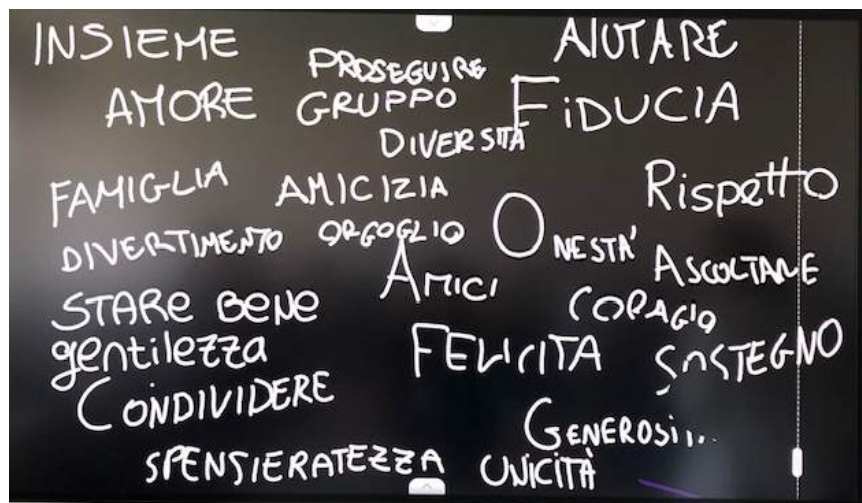 INSIEME
AIUTARE
PROSEGUIRE
AMORE
GRUPPO
FIDUCIA
DIVERSITÀ
FAMIGLIA
AMICIZIA
Rispetto
DIVERTIMENTO
ORGOGLIO
ONESTÀ
AMICI
ASCOLTARE
STARE BENE
CORAGIO
gentilezza
FELICITA
SOSTEGNO
CONDIVIDERE
GENEROSI...
SPENSIERATEZZA
UNICITÀ